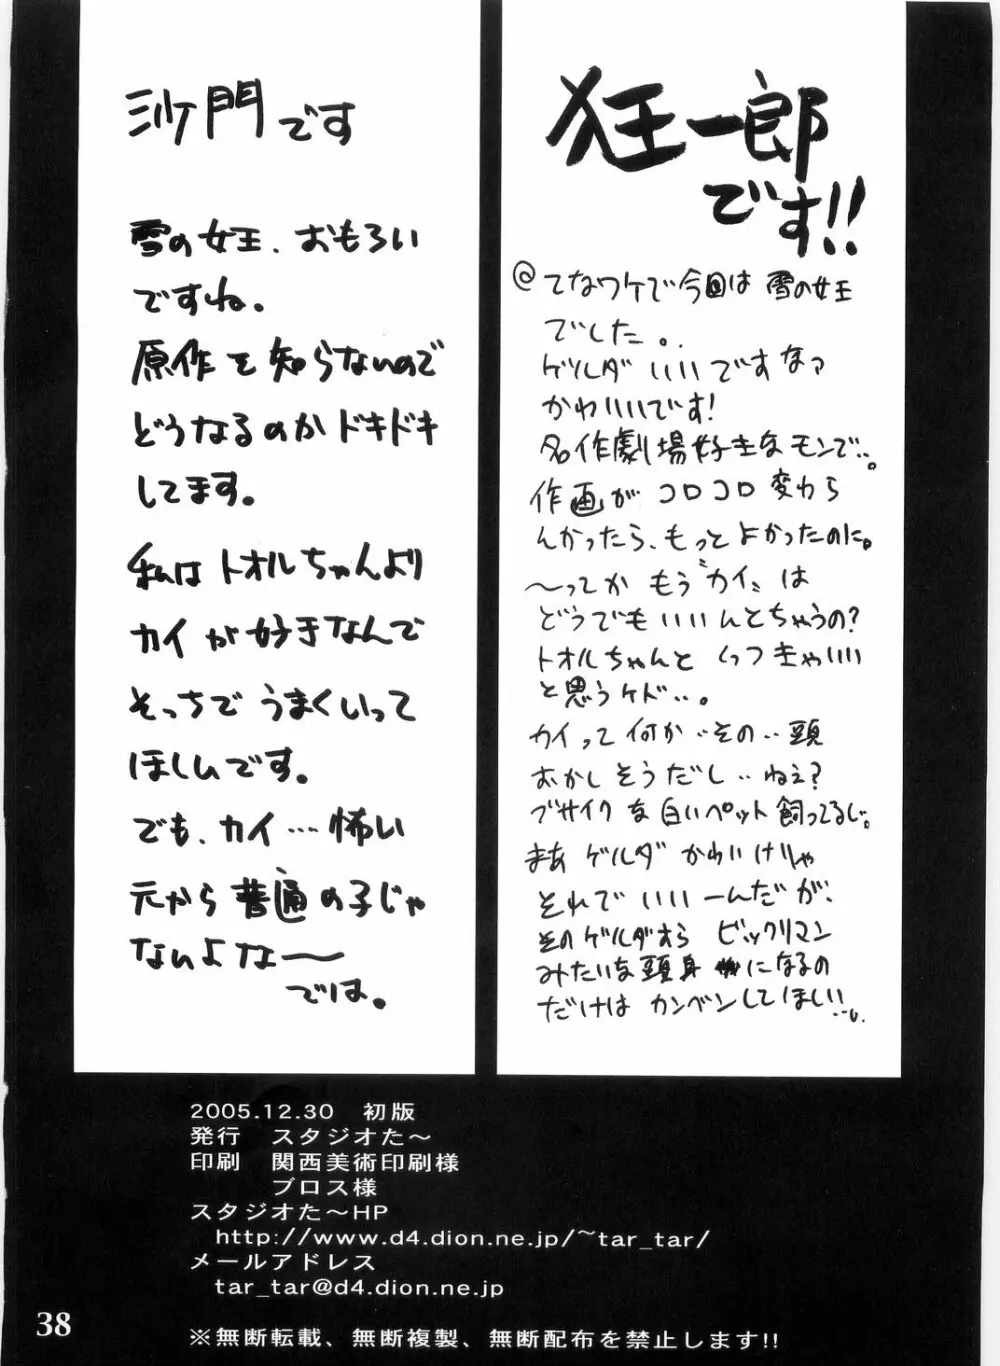 狂一郎
です!!
@てなワケで今回は 雪の女王
でした。
ゲルダ いいですなァ
かわいいです!
名作劇場好きなモンで‥。
作画が コロコロ 変わら
んかったら、もっとよかったのに。
〜ってか もう〝カイ〟は
どうでもいいんとちゃうの?
トオルちゃんと くっつきゃいい
と思うケド‥。
カイって 何か‥その‥頭
おかしそうだし‥ねぇ?
ブサイクな白いペット飼ってるし。
まあ ゲルダ かわいけりゃ
それでいいーんだが、
そのゲルダすら ビックリマン
みたいな頭身になるの
だけは カンベンしてほしい…。
沙門です
雪の女王、おもろい
ですね。
原作を知らないので
どうなるのかドキドキ
してます。
私はトオルちゃんより
カイが好きなんで
そっちでうまくいって
ほしいです。
でも、カイ…怖い
元から普通の子じゃ
ないよなー〜
では。
2005.12.30 初版
発行 スタジオた〜
印刷 関西美術印刷様
ブロス様
スタジオた〜HP
http://www.d4.dion.ne.jp/~tar_tar/
メールアドレス
tar_tar@d4.dion.ne.jp
※無断転載、無断複製、無断配布を禁止します!!
38